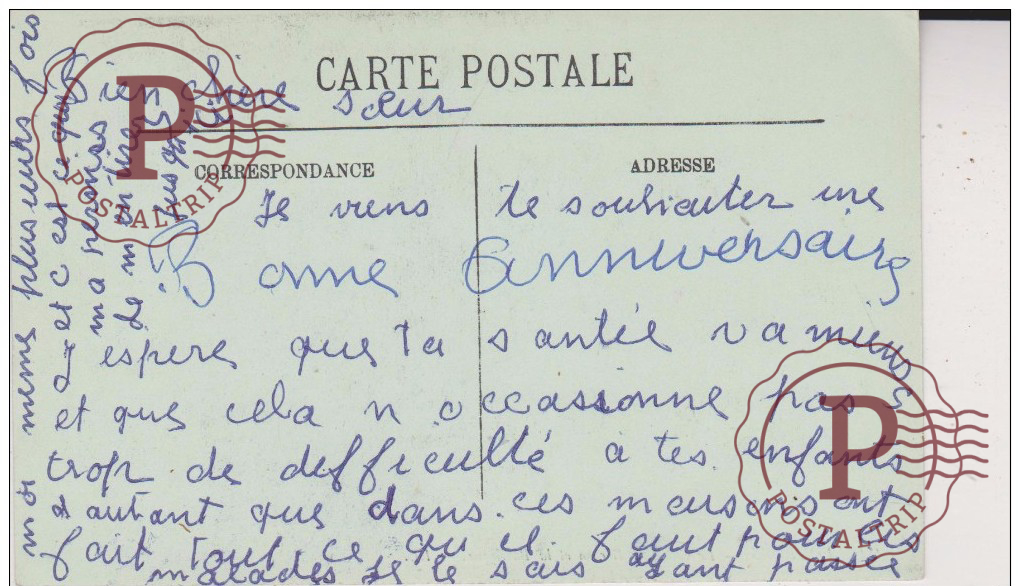 CARTE POSTALE
Bien chère sœur
CORRESPONDANCE
ADRESSE
Je viens te souhaiter une
Bonne Anniversaire
J espere que ta santée va mieus
et que cela n occassionne pas
trop de difficulté a tes enfants
d autant que dans ces maisons ont
fait tout ce qu il faut pour les
malades je le sais ay ant passée
moi meme plusieurs fois
et c est ce qui
ma permis
de m
jusqu
P
POSTALTRIP
P
POSTALTRIP